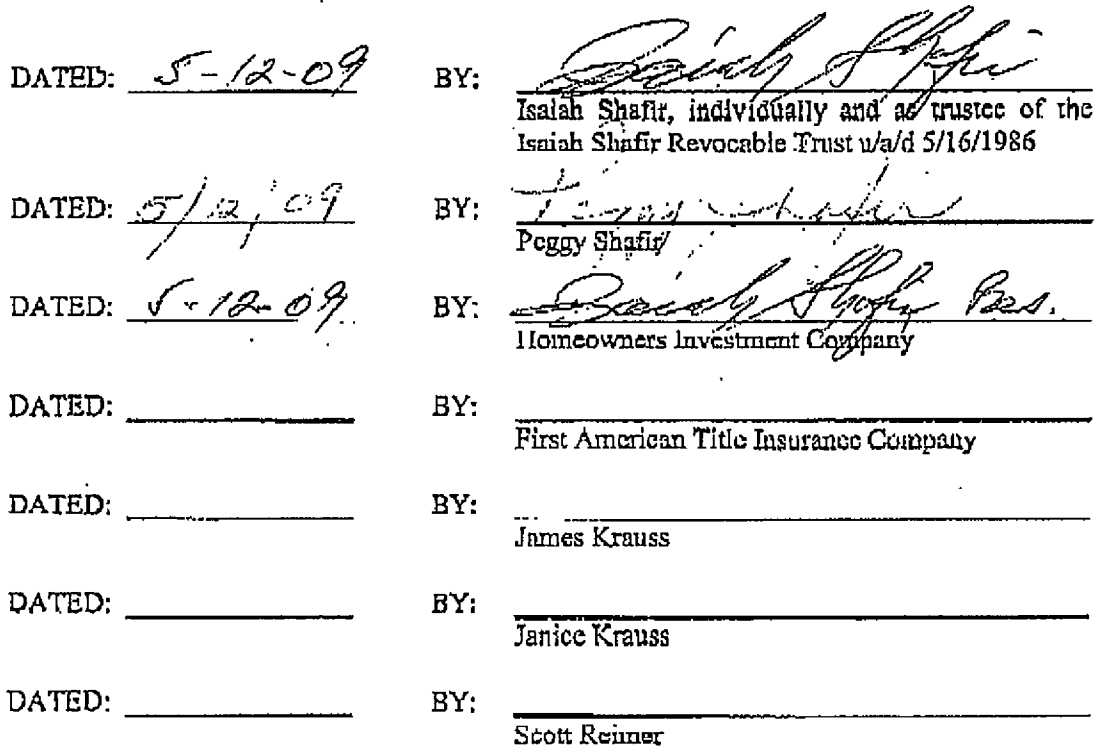 DATED: 5-12-09 BY: Isaiah Shafir
Isaiah Shafir, individually and as trustee of the
Isaiah Shafir Revocable Trust u/a/d 5/16/1986
DATED: 5/12/'09 BY: Peggy Shafir
Peggy Shafir
DATED: 5-12-09 BY: Isaiah Shafir Pres.
Homeowners Investment Company
DATED: BY:
First American Title Insurance Company
DATED: BY:
James Krauss
DATED: BY:
Janice Krauss
DATED: BY:
Scott Reimer